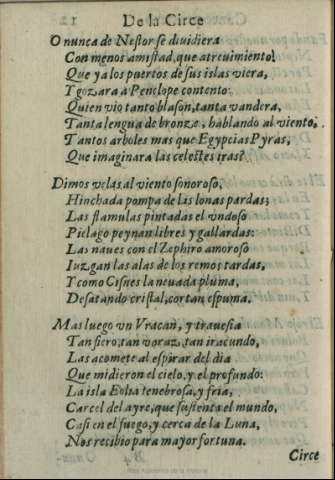 De la Circe
O nunca de Nestor se diuidiera
Con menos amistad, que atreuimiento!
Que ya los puertos de sus islas viera,
Y gozara a Penelope contento:
Quien vio tanto blason, tanta vandera,
Tanta lengua de bronze, hablando al viento,
Tantos arboles mas que Egypcias Pyras,
Que imaginara las celestes iras?
Dimos velas al viento sonoroso,
Hinchada pompa de las lonas pardas;
Las flamulas pintadas el vndoso
Pielago peynan libres y gallardas:
Las naues con el Zephiro amoroso
Iuzgan las alas de los remos tardas,
Y como Cisnes la neuada pluma,
Desatando cristal, cortan espuma.
Mas luego vn Vracan, y trauesia
Tan fiero, tan voraz, tan iracundo,
Las acomete al espirar del dia
Que midieron el cielo, y el profundo:
La isla Eolia tenebrosa, y fria,
Carcel del ayre, que sustenta el mundo,
Casi en el fuego, y cerca de la Luna,
Nos recibio para mayor fortuna.
Circe